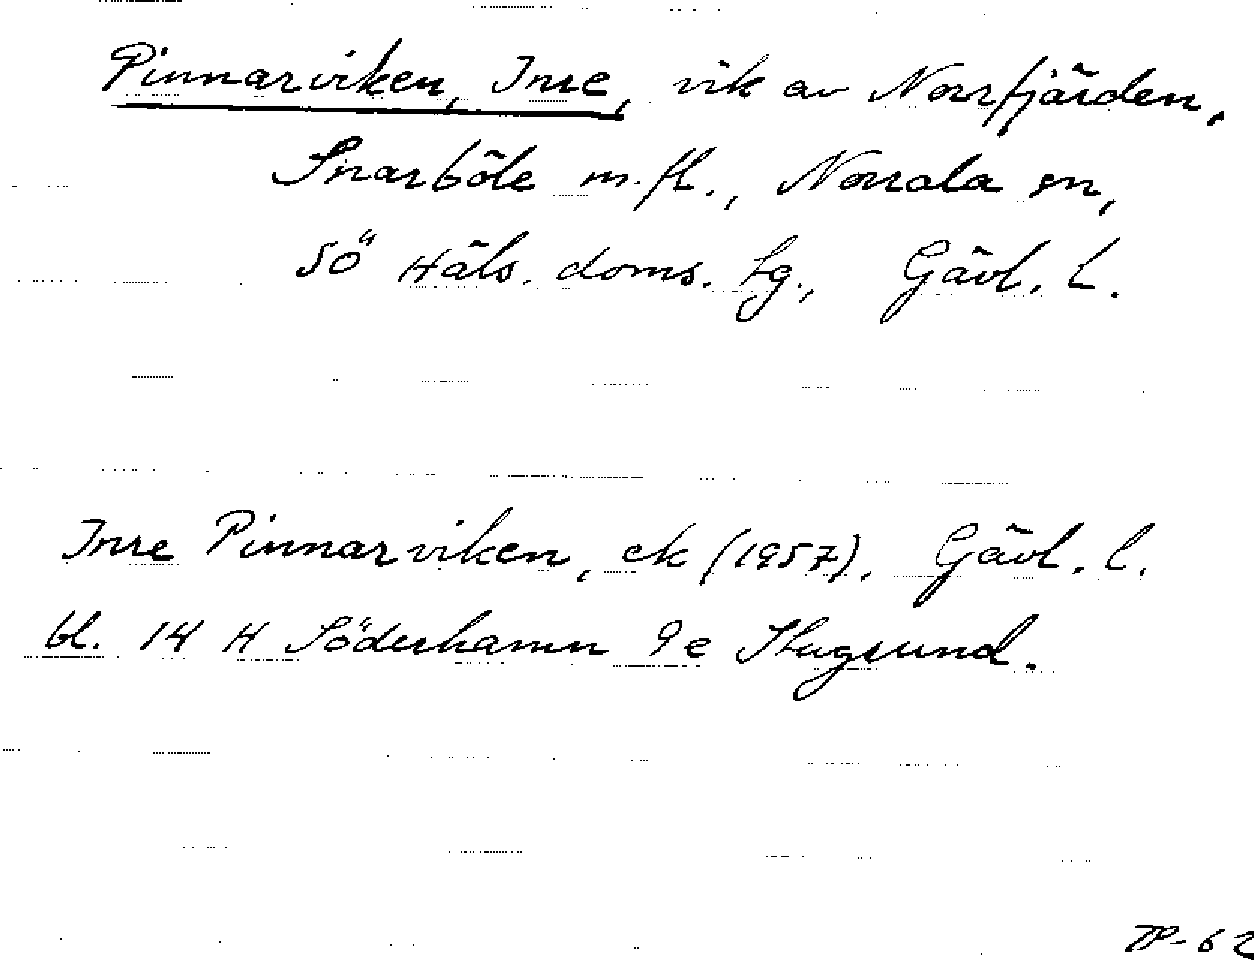 Pinnarviken, Inre, vik av Norrfjärden,
Snarböle m.fl., Norrala sn,
Sö Häls. doms. tg., Gävl. l.
Inre Pinnarviken, ek (1957), Gävl. l.
bl. 14 H Söderhamn 9e Stugsund.
-62